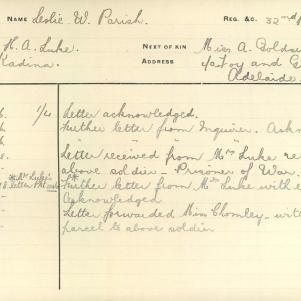 NAME Leslie. W. Parish. REG. &C. 32nd
H. A. Luke.
Kadina.
NEXT OF KIN
ADDRESS
Miss A. Goldsw
c/o Foy and G
Adelaide.
1/4 Letter acknowledged.
Further letter from Inquirer. Ackn
Letter received from Mrs Luke re
above soldier - Prisoner of War.
Further letter from Mrs Luke with e
Acknowledged
Letter forwarded Miss Chomley - with
parcel to above soldier